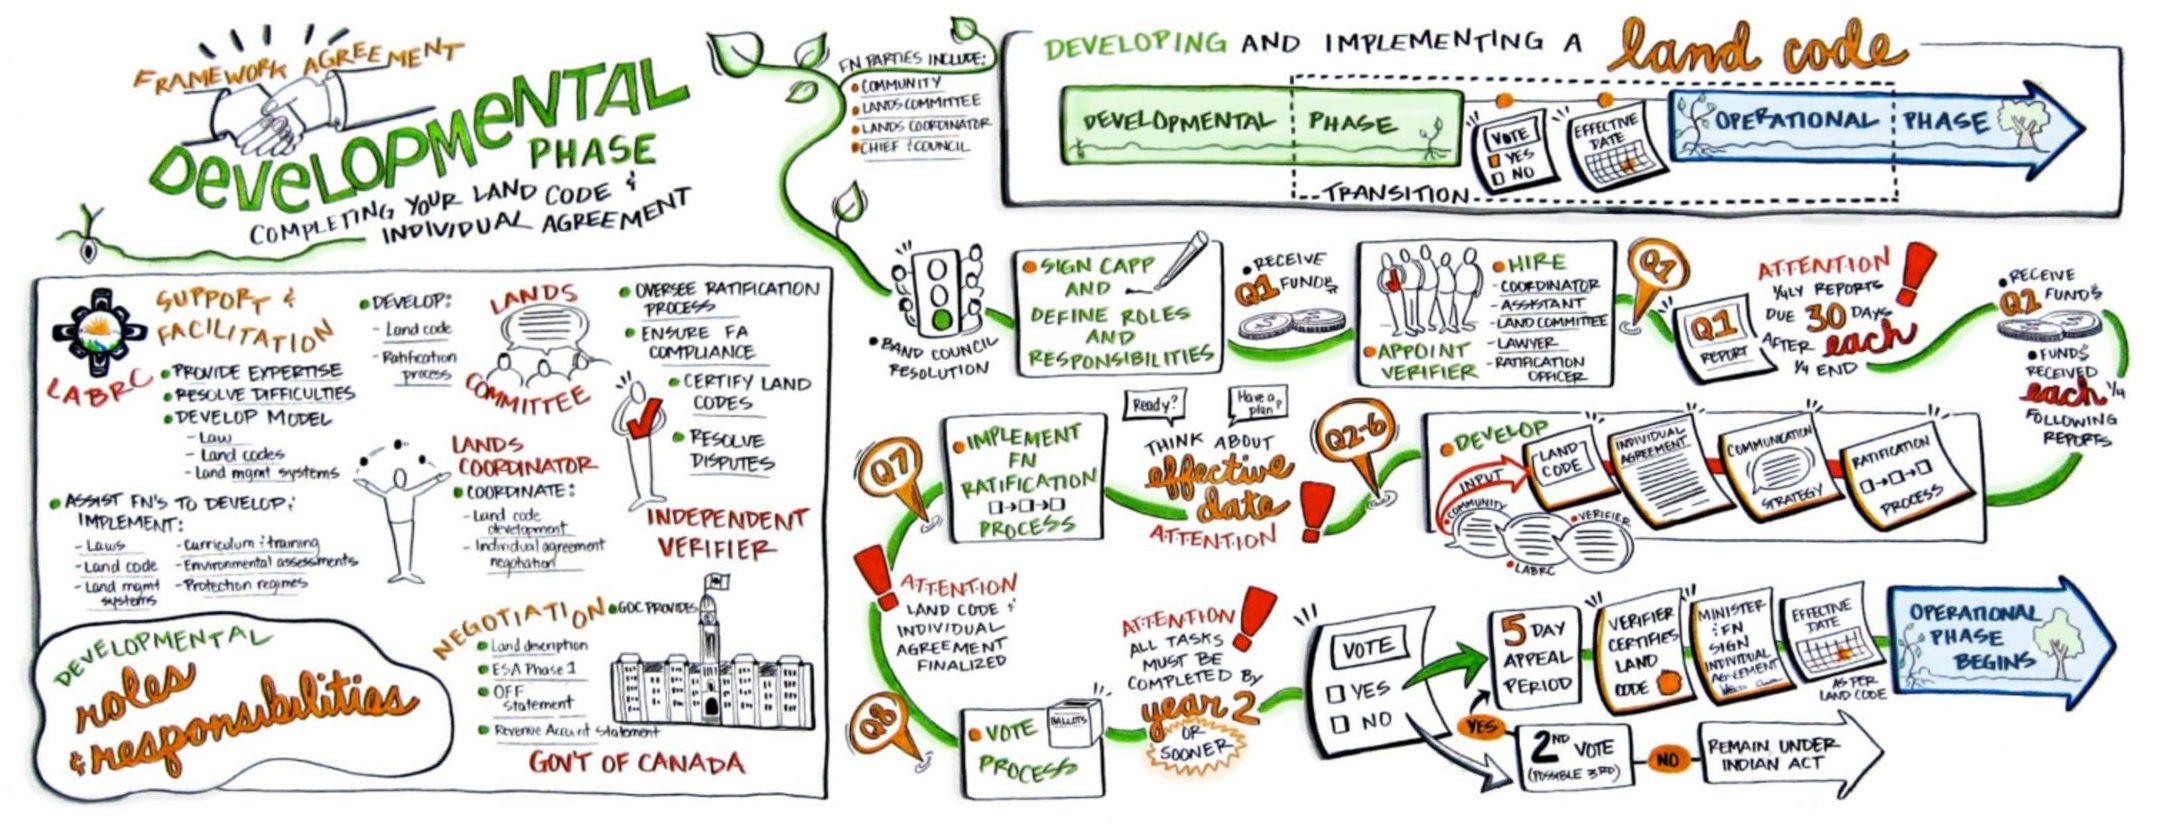 FRAMEWORK AGREEMENT
DEVELOPMENTAL
PHASE
COMPLETING YOUR LAND CODE &
INDIVIDUAL AGREEMENT
FN PARTIES INCLUDE:
COMMUNITY
LANDS COMMITTEE
LANDS COORDINATOR
CHIEF & COUNCIL
DEVELOPING AND IMPLEMENTING A land code
DEVELOPMENTAL PHASE
VOTE
YES
NO
EFFECTIVE
DATE
OPERATIONAL PHASE
TRANSITION
LABRC
SUPPORT &
FACILITATION
• PROVIDE EXPERTISE
• RESOLVE DIFFICULTIES
• DEVELOP MODEL
- Law
- Land codes
- Land mgmt systems
• ASSIST FN'S TO DEVELOP &
IMPLEMENT:
- Laws
- Land code
- Land mgmt
systems
- Curriculum & training
- Environmental assessments
- Protection regimes
• DEVELOP:
- Land code
- Ratification
process
LANDS
COMMITTEE
LANDS
COORDINATOR
• COORDINATE:
- Land code
development
- Individual agreement
negotiation
• OVERSEE RATIFICATION
PROCESS
• ENSURE FA
COMPLIANCE
• CERTIFY LAND
CODES
• RESOLVE
DISPUTES
INDEPENDENT
VERIFIER
DEVELOPMENTAL
roles
& responsibilities
NEGOTIATION
• GOC PROVIDES
• Land description
• ESA Phase 1
• OFF
Statement
• Revenue Account Statement
GOV'T OF CANADA
• BAND COUNCIL
RESOLUTION
• SIGN CAPP
AND
DEFINE ROLES
AND
RESPONSIBILITIES
• RECEIVE
Q1 FUNDS
• APPOINT
VERIFIER
• HIRE
- COORDINATOR
- ASSISTANT
- LAND COMMITTEE
- LAWYER
- RATIFICATION
OFFICER
Q1
Q1
REPORT
ATTENTION
¼LY REPORTS
DUE 30 DAYS
AFTER each
¼ END
• RECEIVE
Q2 FUNDS
• FUNDS
RECEIVED
each ¼
FOLLOWING
REPORTS
• DEVELOP
INPUT
• COMMUNITY
• LABRC
• VERIFIER
LAND
CODE
INDIVIDUAL
AGREEMENT
COMMUNICATION
STRATEGY
RATIFICATION
PROCESS
Q2-6
Ready?
Have a
plan?
THINK ABOUT
effective
date
ATTENTION
• IMPLEMENT
FN
RATIFICATION
PROCESS
Q7
ATTENTION
LAND CODE &
INDIVIDUAL
AGREEMENT
FINALIZED
Q8
• VOTE
PROCESS
BALLOTS
ATTENTION
ALL TASKS
MUST BE
COMPLETED BY
year 2
OR
SOONER
VOTE
YES
NO
5 DAY
APPEAL
PERIOD
VERIFIER
CERTIFIES
LAND
CODE
MINISTER
& FN
SIGN
INDIVIDUAL
AGREEMENT
EFFECTIVE
DATE
AS PER
LAND CODE
OPERATIONAL
PHASE
BEGINS
YES
2ND VOTE
(POSSIBLE 3RD)
NO
REMAIN UNDER
INDIAN ACT